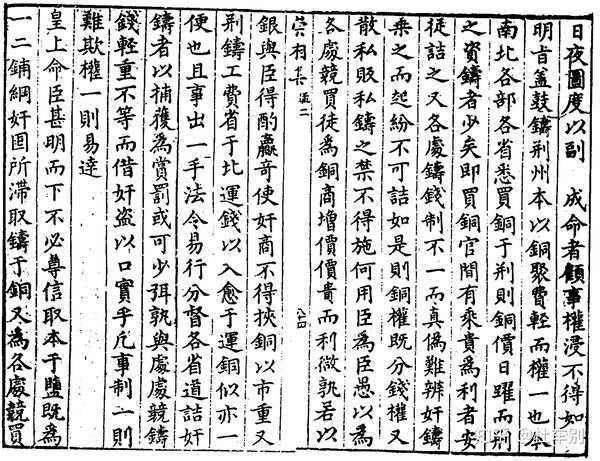 日夜圖度以副　成命者顧事權浸不得如
明旨盖鼓鑄荆州本以銅聚費輕而權一也本
南北各部各省悉買銅于荆則銅價日躍而荆
之資鑄者少矣即買銅官間有乗貴爲利者安
徒詰之又各處鑄錢制不一而真僞難辨奸鑄
乗之而起紛不可詰如是則銅權既分錢權又
散私販私鑄之禁不得施何用臣爲臣愚以爲
各處競買徒爲銅商增價價貴而利微孰若以
宗相集
銀與臣得酌贏竒使奸商不得挾銅以市重又
荆鑄工費省于北運錢以入愈于運銅似亦一
便也且事出一手法令易行分督各省道詰奸
鑄者以捕獲爲賞罰或可少弭孰與處處競鑄
錢輕重不等而借奸盗以口實乎凢事制二則
難欺權一則易達
皇上命臣甚明而下不必尊信取本于鹽既爲
一二鋪綱奸囤所滯取鑄于銅又爲各處競買